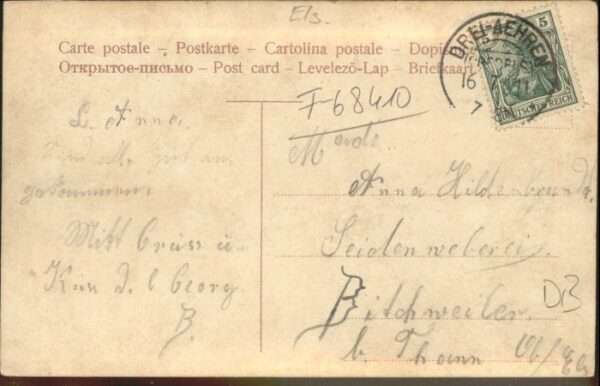 Els.
Carte postale – Postkarte – Cartolina postale – Dopis
Открытое-письмо – Post card – Levelező-Lap – Briefkaart
DREI-AEHREN
16
7
5
DEUTSCHES REICH
F-68410
L. Anna.
Sind alle gut an
gekommen.
Mitt Gruss u.
Kus d. l Georg
B.
Made.
Anna Hildenbrandt.
Seidenweberei.
Bitchweiler.
DB
b. Thann Ob/Els